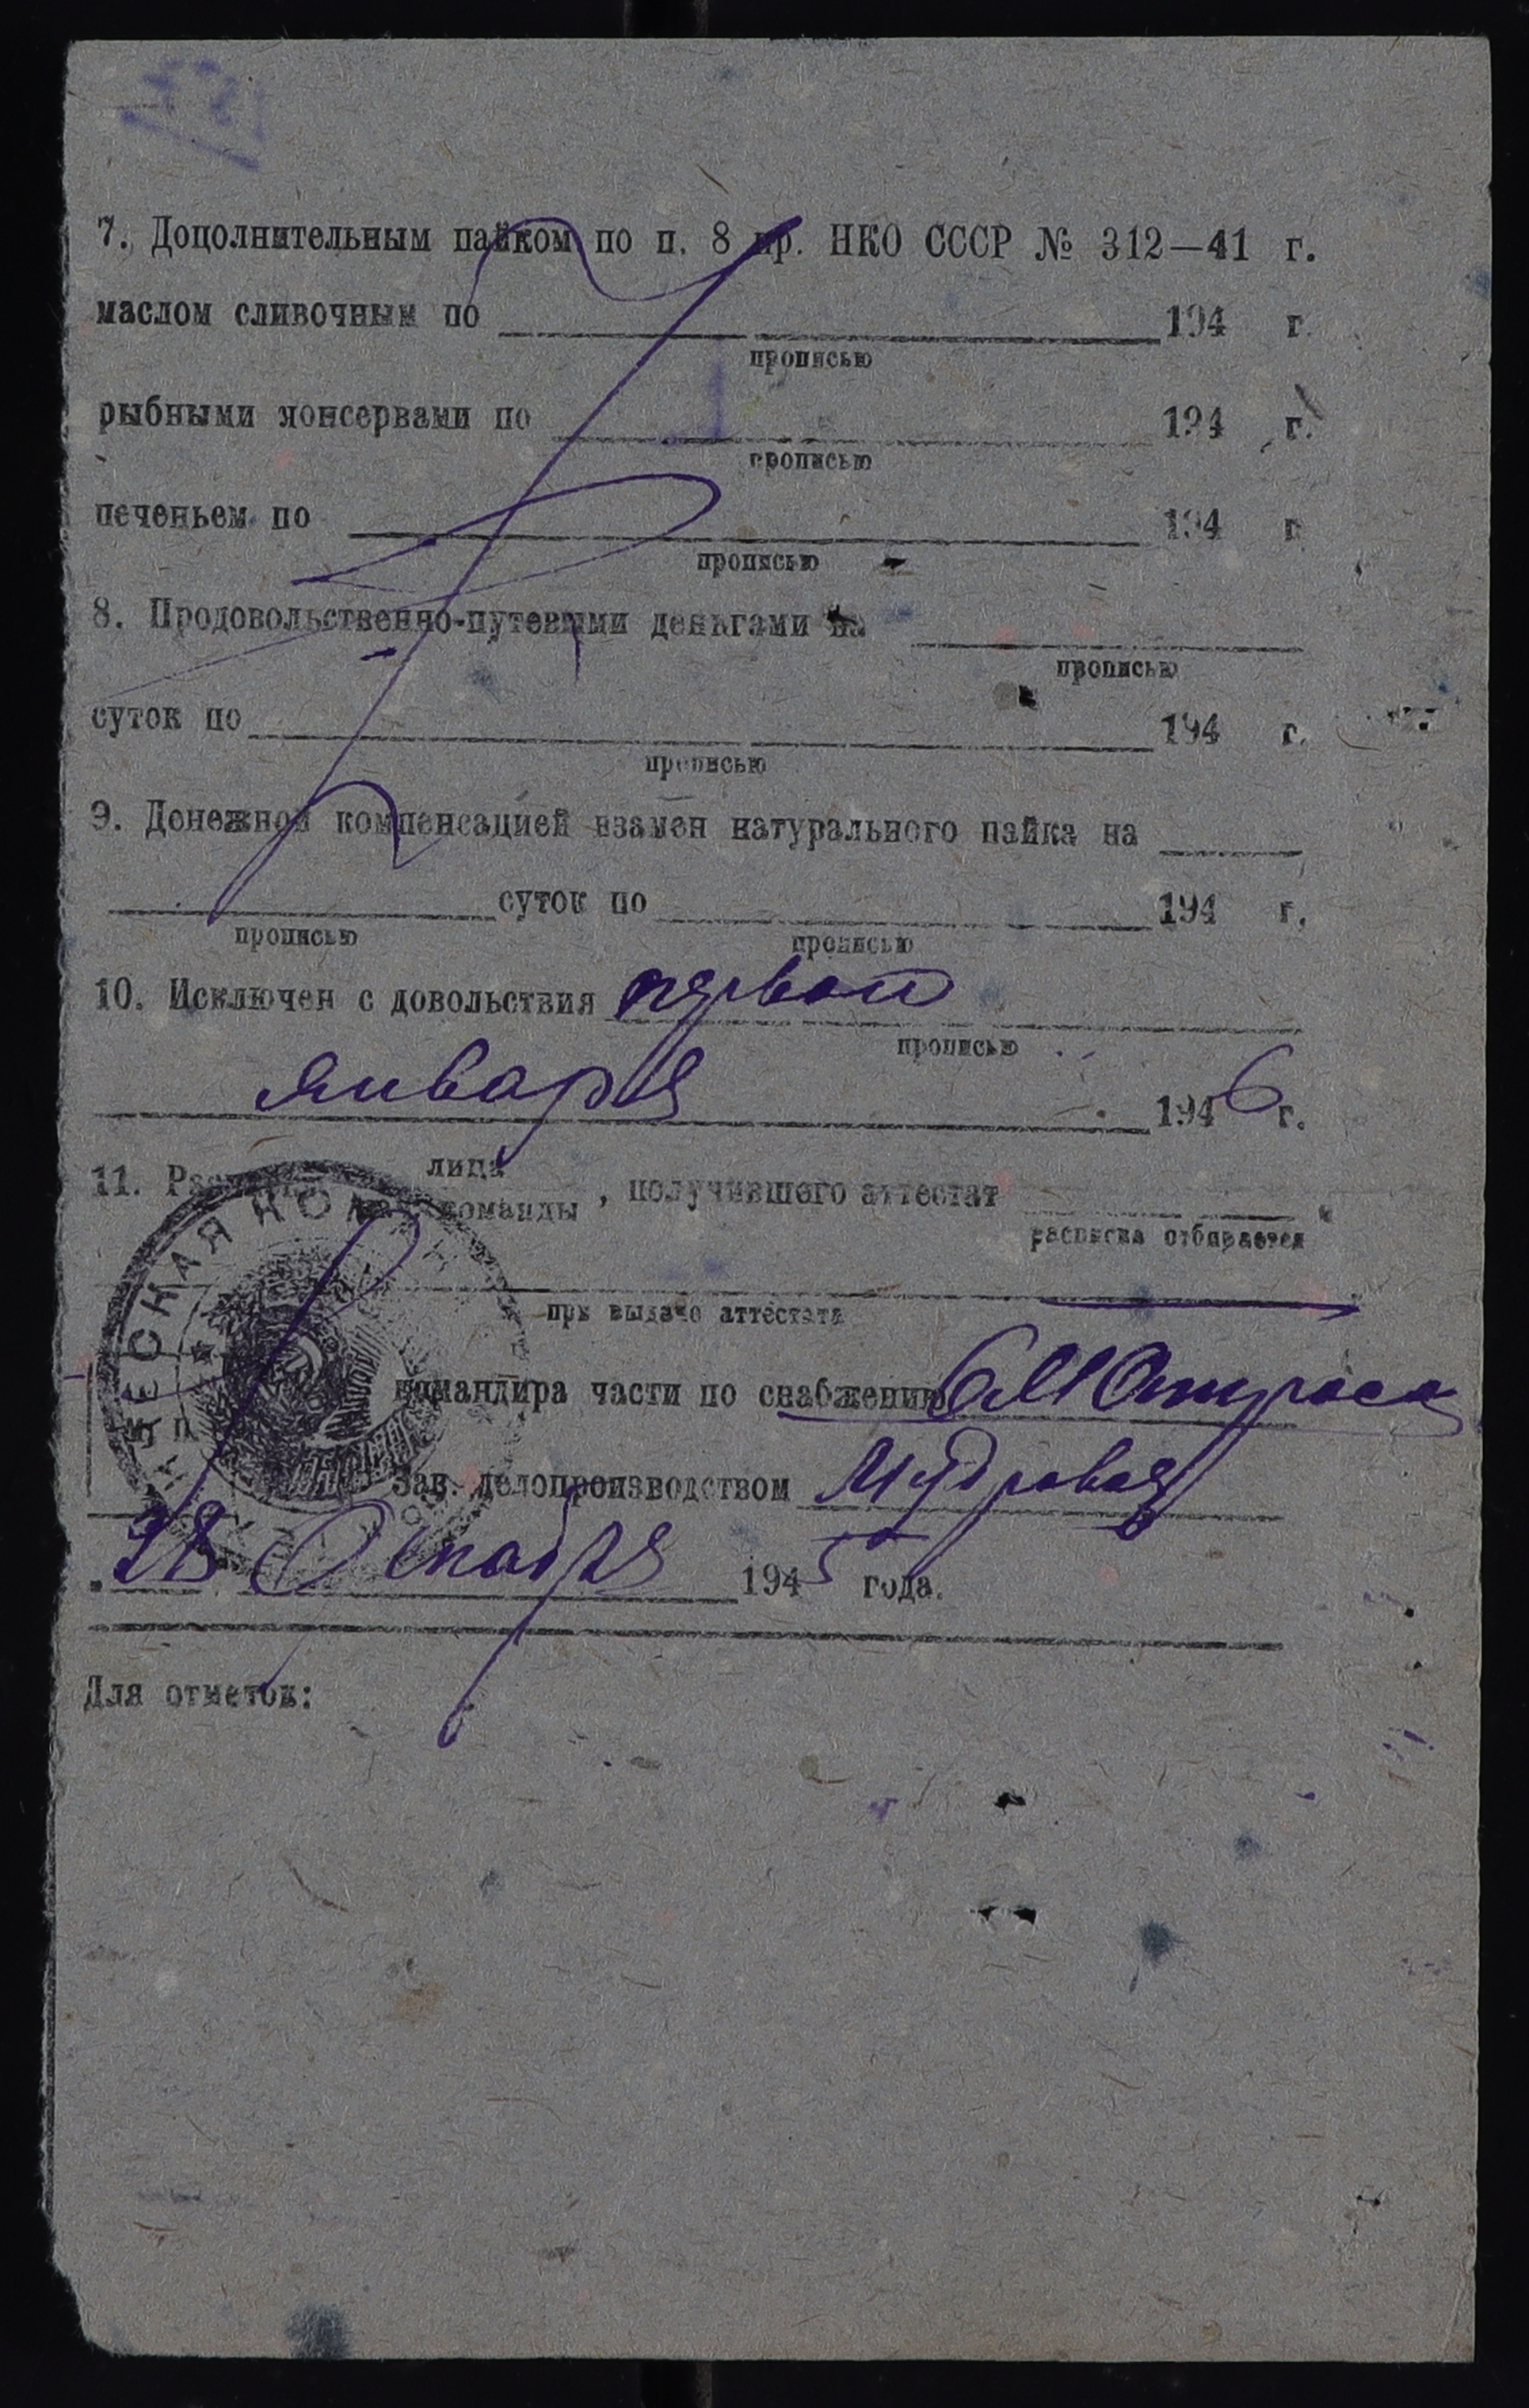 7. Дополнительным пайком по п. 8 пр. НКО СССР № 312—41 г.
маслом сливочным по 194 г.
прописью
рыбными консервами по 194 г.
прописью
печеньем по 194 г
прописью
8. Продовольственно-путевыми деньгами на
прописью
суток по 194 г.
прописью
9. Денежной компенсацией взамен натурального пайка на
суток по 194 г.
прописью прописью
10. Исключен с довольствия первого
прописью
января 1946 г.
11. лица
команды , получившего аттестат
расписка отбирается
при выдаче аттестата
командира части по снабжению
Зав. делопроизводством Мудровая
28 Декабря 1945 года.
Для отметок: